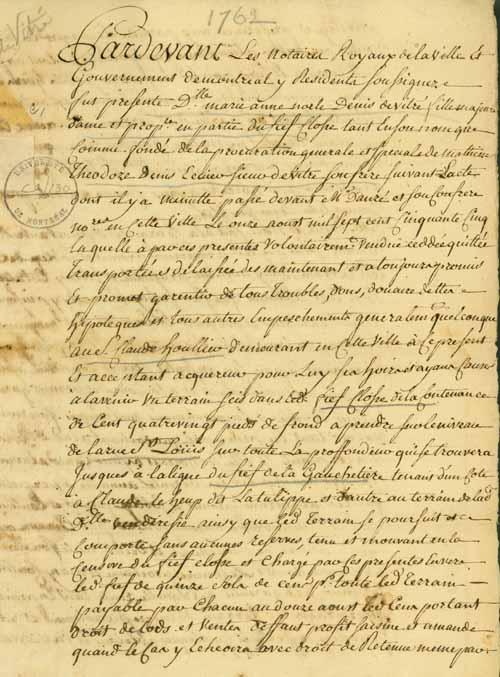 1762
Pardevant Les Notaires Royaux de la Ville Et
Gouvernement de montreal y Residents soussignez
fut presente D.lle marie anne noele Denis de vitre fille majeure
dame et prop.re en partie du fief Closse tant En son nom que
comme fondé de la procuration generale et speciale de mathieu
Theodoze Denis Ecuier sieur de Vitre son frere suivant L'acte
dont il y a minutte passé devant M.e danré et son Confrere
no.res en Cette Ville Le onze aoust mil sept cent Cinquante Cinq
laquelle à par ces presentes Volontairem.t Vendue ceddée quittée
Transportée et delaissée des maintenant et a toujours promis
Et promet garentir de tous Troubles, dons, douaire dettes
hipoteques et tous autres Empeschements generalem.t quelconque
au S. Claude houllier demeurant en Cette Ville à Ce present
Et acceptant acquereur pour Luy ses hoirs et ayans Cause
a lavenir un terrain scis dans led. fief Closse de la Contenance
de Cent quatrevingt pieds de frond a prendre sur le niveau
de la rue S.t Loüis sur toute La profondeur qui se trouvera
Jusques à la ligne du fief de la Gauchetiere tenant d'un Coté
à Claude le loup dit La tulippe et d'autre au terrain de lad.
D.lle venderesse ainsy que led. Terrain se poursuit et
Comporte sans aucunes reserves, tenu et mouvant en la
Censive du fief Closse et Chargé par Ces presentes Envers
led. fief de quinze sols de cens p.r toute led. terrain
payable par Chacun au douze aoust led. Cens portant
droit de Lods et Ventes deffaut profit saisine et amande
quand le Cas y Echeoira avec droit de Retenue meme par